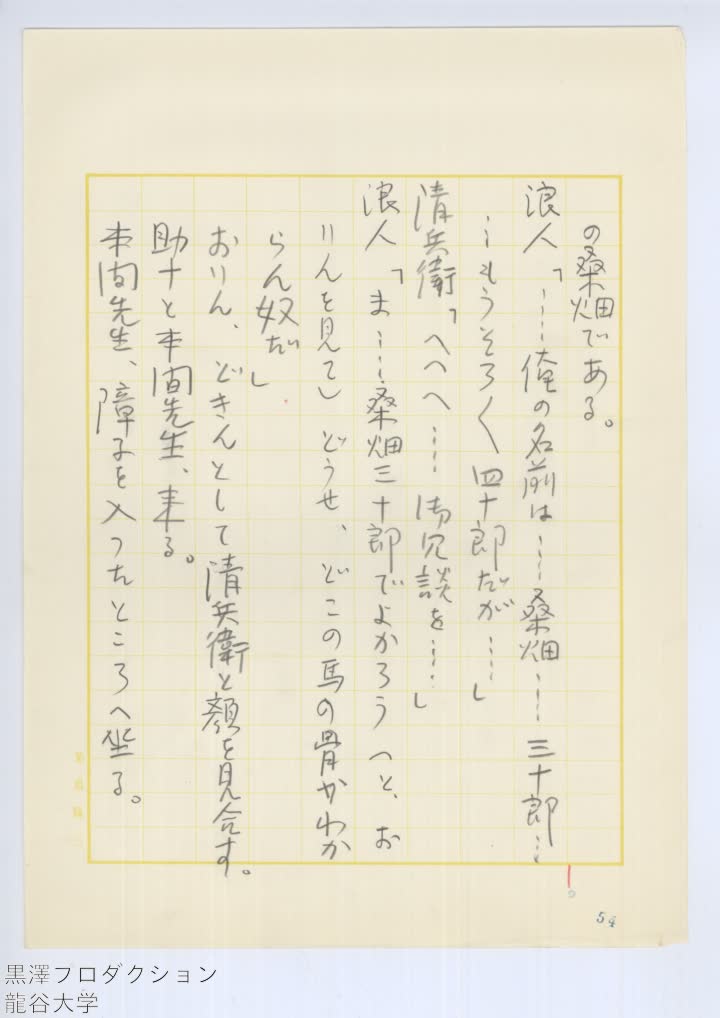 の桑畑である。
浪人「……俺の名前は……桑畑……三十郎…
…もうそろ〱四十郎だが……」
清兵衛「へへへ……御冗談を……」
浪人「ま……桑畑三十郎でよかろう（と、お
りんを見て）どうせ、どこの馬の骨かわか
らん奴だ」
おりん、どきんとして清兵衛と顔を見合す。
助十と本間先生、来る。
本間先生、障子を入つたところへ坐る。
54
黒澤プロダクション
龍谷大学